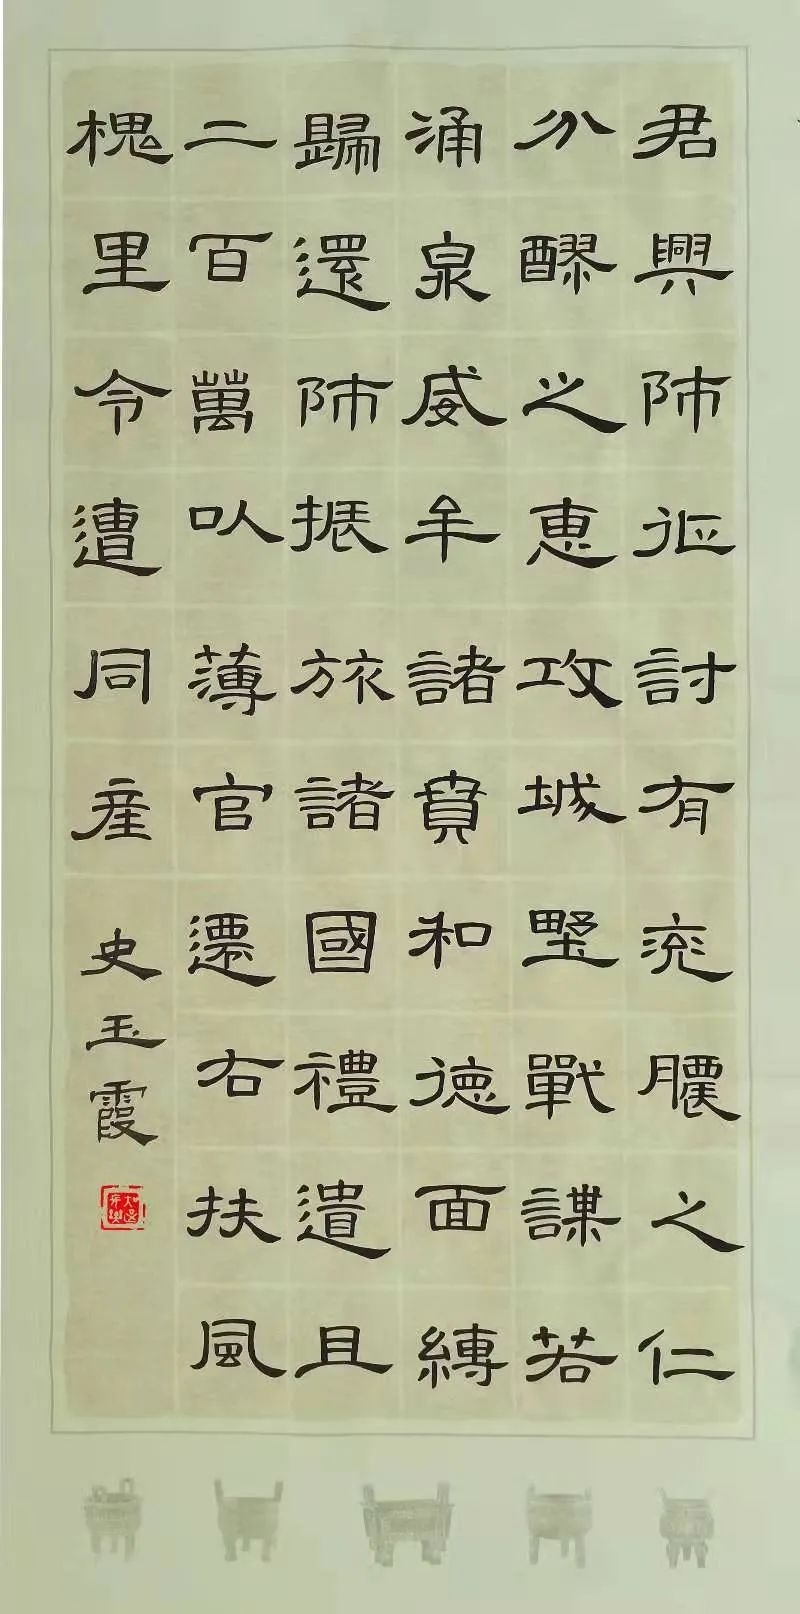 君興師征討有兖膿之仁
分醪之惠攻城墅戰謀若
涌泉威牟諸賁和德面縛
歸還師振旅諸國禮遺且
二百萬以薄官遷右扶風
槐里令遭同產 史玉霞